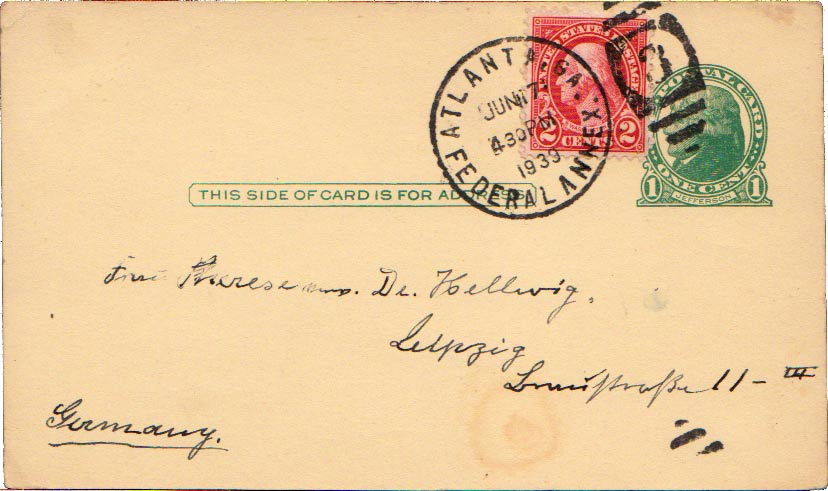 ATLANTA, GA.
JUN 17
4 30 PM
1939
FEDERAL ANNEX
UNITED STATES POSTAGE
2 CENTS 2
3
POSTAL CARD
1 ONE CENT 1
JEFFERSON
THIS SIDE OF CARD IS FOR ADDRESS
Frau Therese Dr. Hellwig.
Leipzig
11 - III
Germany.